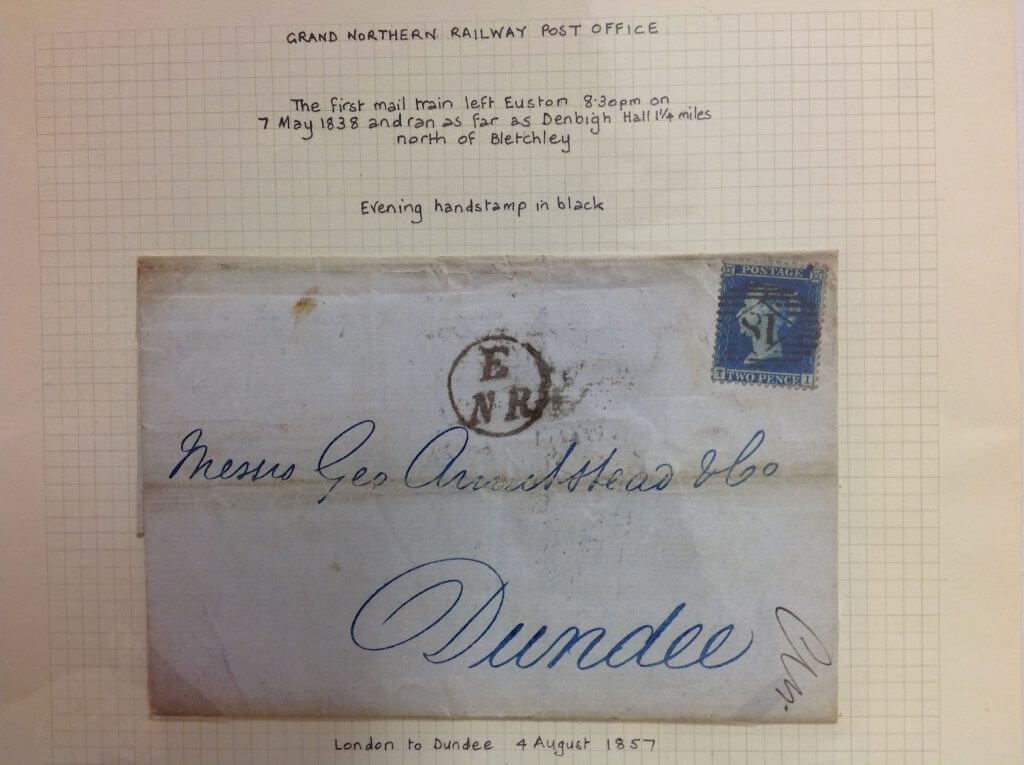 GRAND NORTHERN RAILWAY POST OFFICE
The first mail train left Euston 8·30pm on
7 May 1838 and ran as far as Denbigh Hall 1¼ miles
north of Bletchley
Evening handstamp in black
POSTAGE
81
T TWO PENCE I
E
NR
Messrs Geo Armitstead & Co
Dundee
London to Dundee 4 August 1857